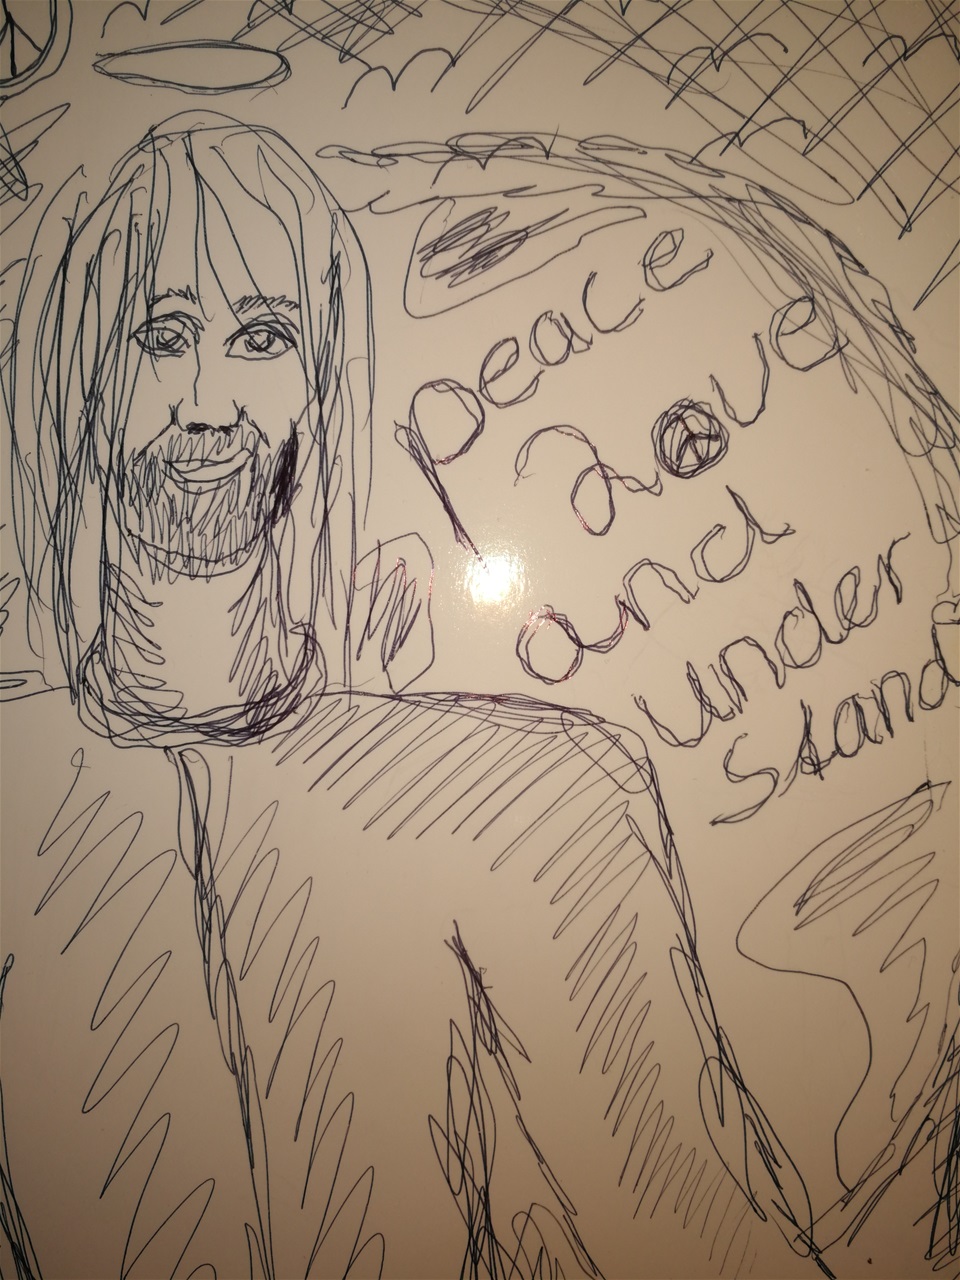 peace
love
and
under
stand